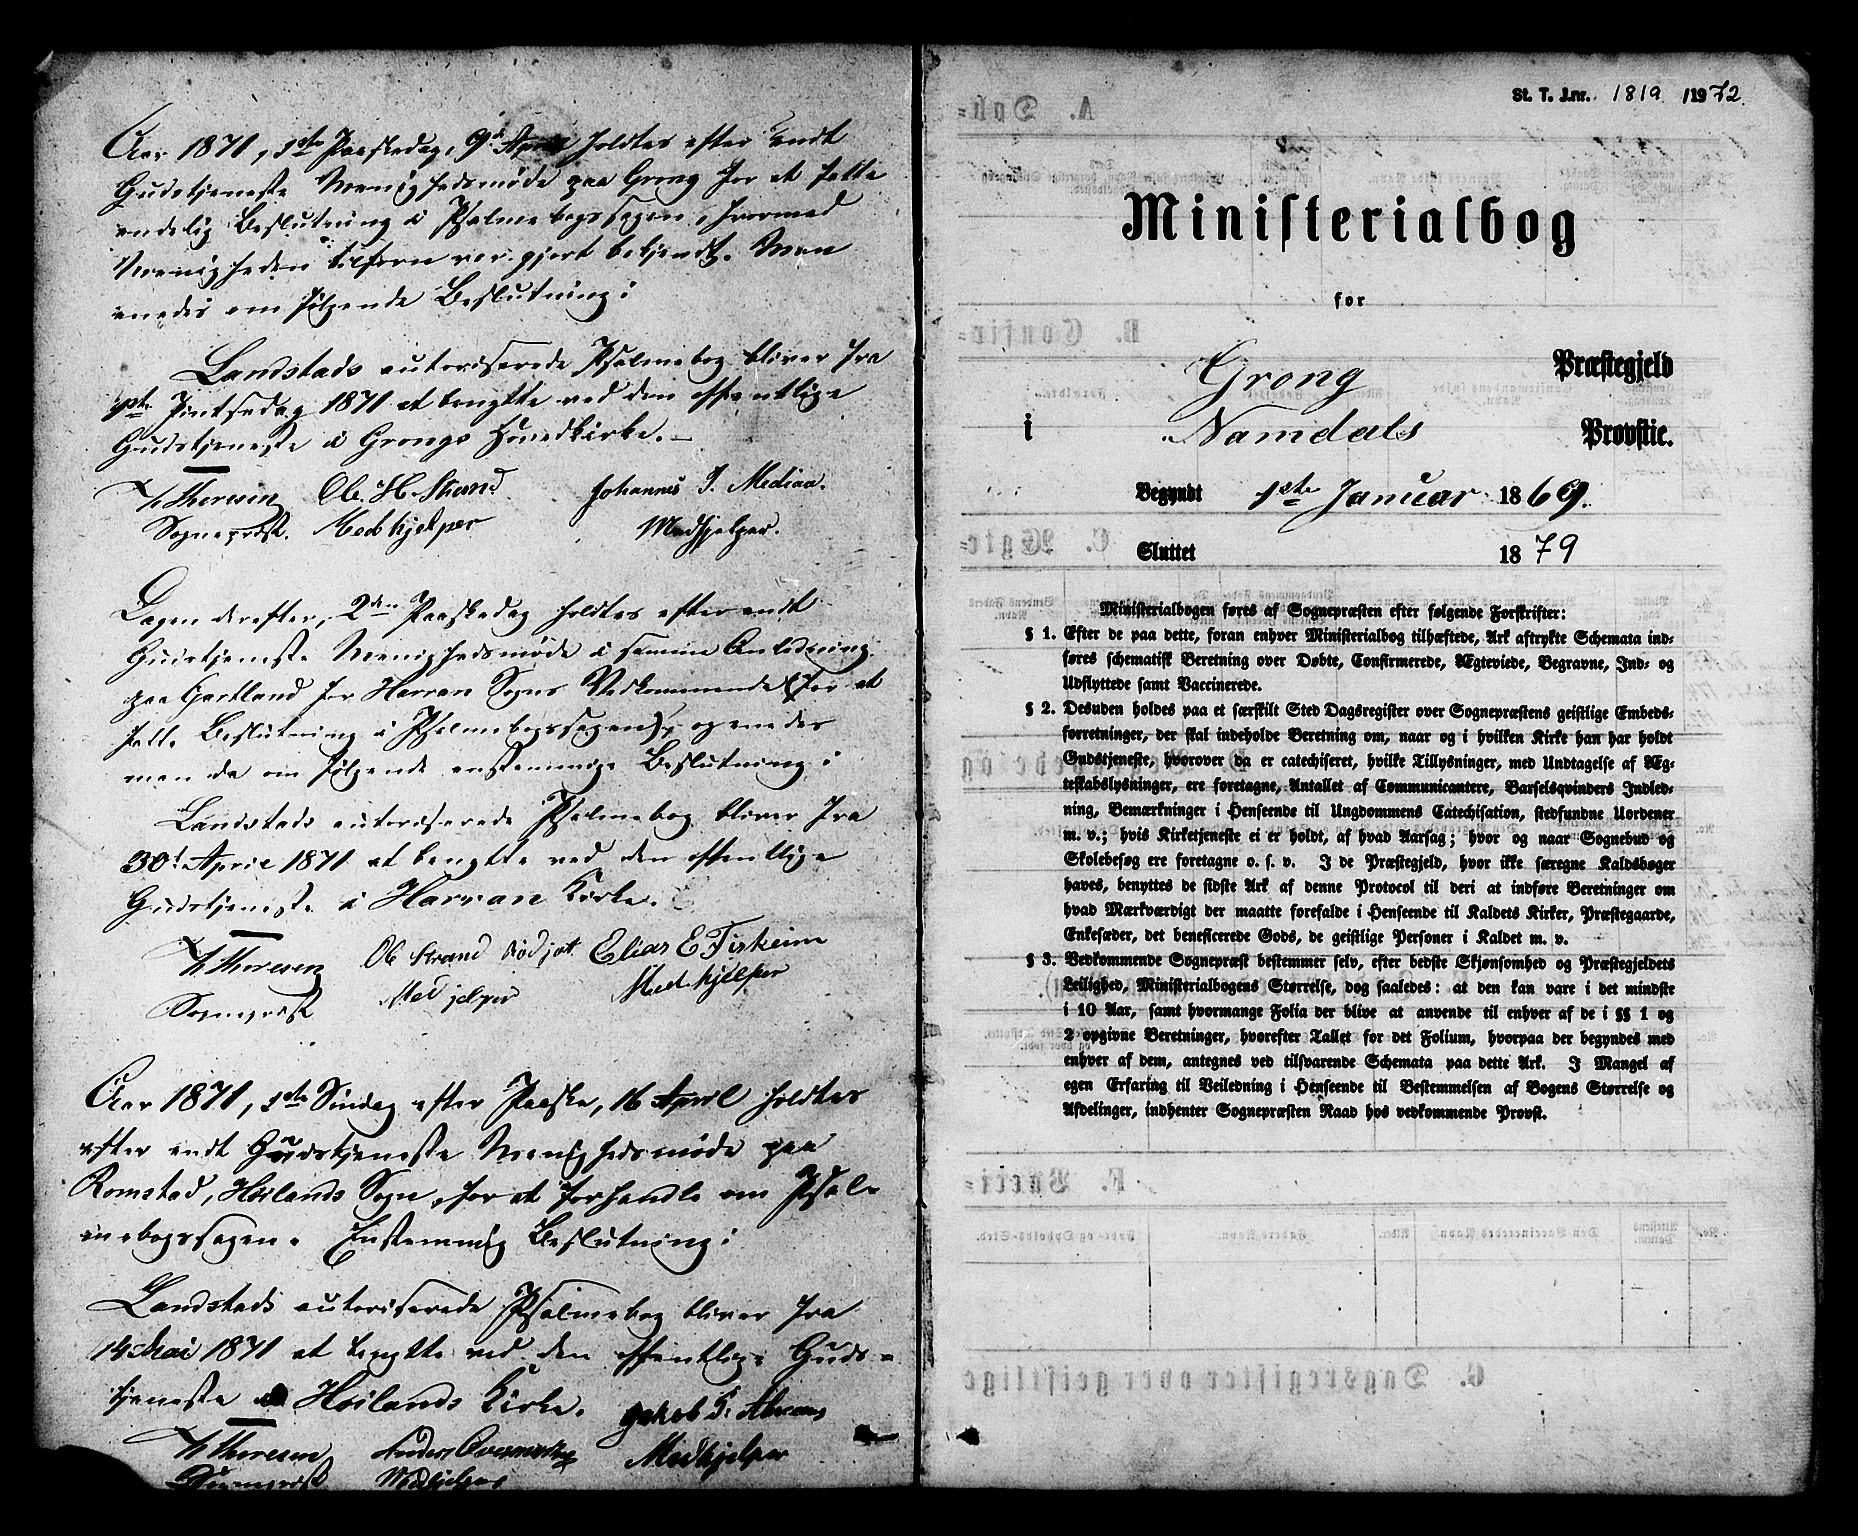 Aar 1871, 1ste Paaskedag, 9d April holdtes efter endt
Gudstjeneste Menighedsmøde paa Grong for at fatte
endelig Beslutning i Psalmebogssagen, hvormed
Menigheden tilforn var gjort bekjendt. Man
enedes om følgende Beslutning:
Landstads autoriserede Psalmebog bliver fra
1ste Pintsedag 1871 at benytte ved den offentlige
Gudstjeneste i Grongs Hovedkirke.
Thoresen Ole H. Strand Johannes J. Mediaa.
Sognepræst. Medhjelper Medhjelper.
Dagen derefter, 2den Paaskedag holdtes efter endt
Gudstjeneste Menighedsmøde i samme Anledning
paa Gartland for Harran Sogns Vedkommende (for at
fatte Beslutning i Psalmebogssagen), og enedes
man da om følgende enstemmige Beslutning:
Landstads autoriserede Psalmebog bliver fra
30d April 1871 at benytte ved den offentlige
Gudstjeneste i Harran Kirke.
Thoresen Ole Strand Elias E Fiskum
Sognepræst Medhjelper Medhjelper
Aar 1871, 1ste Søndag efter Paaske, 16 April holdtes
efter endt Gudstjeneste Menighedsmøde paa
Romstad, Høilands Sogn, for at forhandle om Psal-
mebogssagen. Enstemmig Beslutning:
Landstads autoriserede Psalmebog bliver fra
14 Mai 1871 at benytte ved den offentlige Guds-
tjeneste i Høilands Kirke.
Thoresen Medhjelper
Sognepræst Medhjelper
St. T. J.nr. 1819 /1972.
Ministerialbog
for
Grong Præstegjeld
i Namdals Provstie.
Begyndt 1ste Januar 1869.
Sluttet 1879
Ministerialbogen føres af Sognepræsten efter følgende Forskrifter:
§ 1. Efter de paa dette, foran enhver Ministerialbog tilhæftede, Ark aftrykte Schemata ind-
føres schematisk Beretning over Døbte, Confirmerede, Ægteviede, Begravne, Ind- og
Udflyttede samt Vaccinerede.
§ 2. Desuden holdes paa et særskilt Sted Dagsregister over Sognepræstens geistlige Embeds-
forretninger, der skal indeholde Beretning om, naar og i hvilken Kirke han har holdt
Gudstjeneste, hvorover da er catechiseret, hvilke Tillysninger, med Undtagelse af Æg-
teskabslysninger, ere foretagne, Antallet af Communicantere, Barselsqvinders Indled-
ning, Bemærkninger i Henseende til Ungdommens Catechisation, stedfundne Uordener
m. v.; hvis Kirketjeneste ei er holdt, af hvad Aarsag; hvor og naar Sognebud og
Skolebesøg ere foretagne o. s. v. I de Præstegjeld, hvor ikke særegne Kaldsbøger
haves, benyttes de sidste Ark af denne Protocol til deri at indføre Beretninger om
hvad Mærkværdigt der maatte forefalde i Henseende til Kaldets Kirker, Præstegaarde,
Enkesæder, det beneficerede Gods, de geistlige Personer i Kaldet m. v.
§ 3. Vedkommende Sognepræst bestemmer selv, efter bedste Skjønsomhed og Præstegjeldets
Leilighed, Ministerialbogens Størrelse, dog saaledes: at den kan vare i det mindste
i 10 Aar, samt hvormange Folia der blive at anvende til enhver af de i §§ 1 og
2 opgivne Beretninger, hvorefter Tallet for det Folium, hvorpaa der begyndes med
enhver af dem, antegnes ved tilsvarende Schemata paa dette Ark. I Mangel af
egen Erfaring til Veiledning i Henseende til Bestemmelsen af Bogens Størrelse og
Afdelinger, indhenter Sognepræsten Raad hos vedkommende Provst.